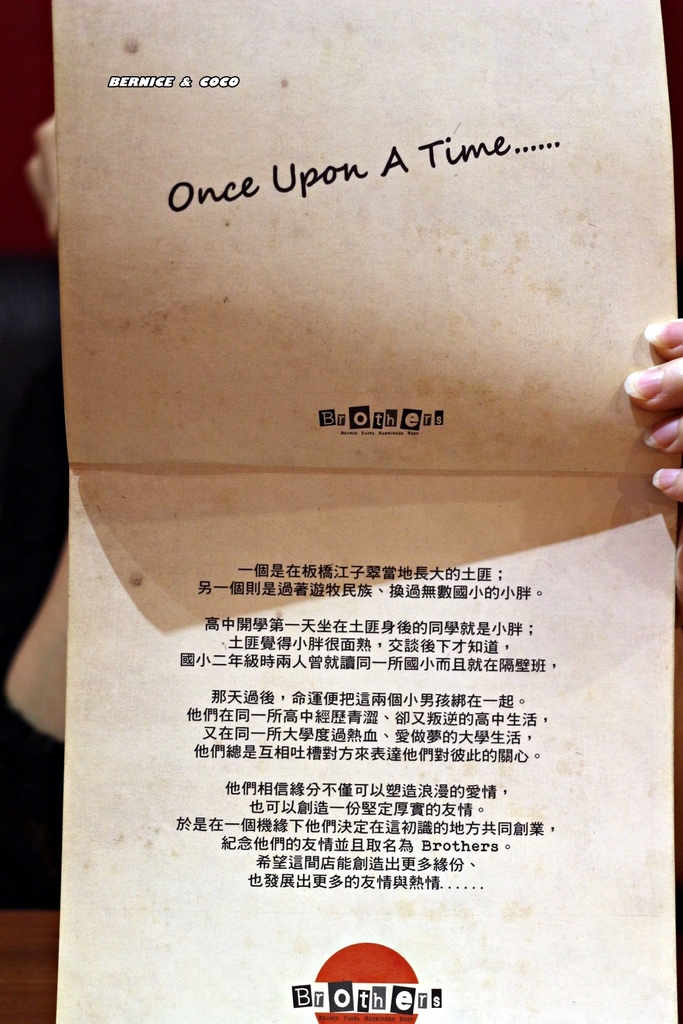 BERNICE & COCO
Once Upon A Time......
Brothers
Brunch Pasta Hamburger Beer
一個是在板橋江子翠當地長大的土匪；
另一個則是過著遊牧民族、換過無數國小的小胖。
高中開學第一天坐在土匪身後的同學就是小胖；
土匪覺得小胖很面熟，交談後下才知道，
國小二年級時兩人曾就讀同一所國小而且就在隔壁班，
那天過後，命運便把這兩個小男孩綁在一起。
他們在同一所高中經歷青澀、卻又叛逆的高中生活，
又在同一所大學度過熱血、愛做夢的大學生活，
他們總是互相吐槽對方來表達他們對彼此的關心。
他們相信緣分不僅可以塑造浪漫的愛情，
也可以創造一份堅定厚實的友情。
於是在一個機緣下他們決定在這初識的地方共同創業，
紀念他們的友情並且取名為 Brothers。
希望這間店能創造出更多緣份、
也發展出更多的友情與熱情......
Brothers
Brunch Pasta Hamburger Beer